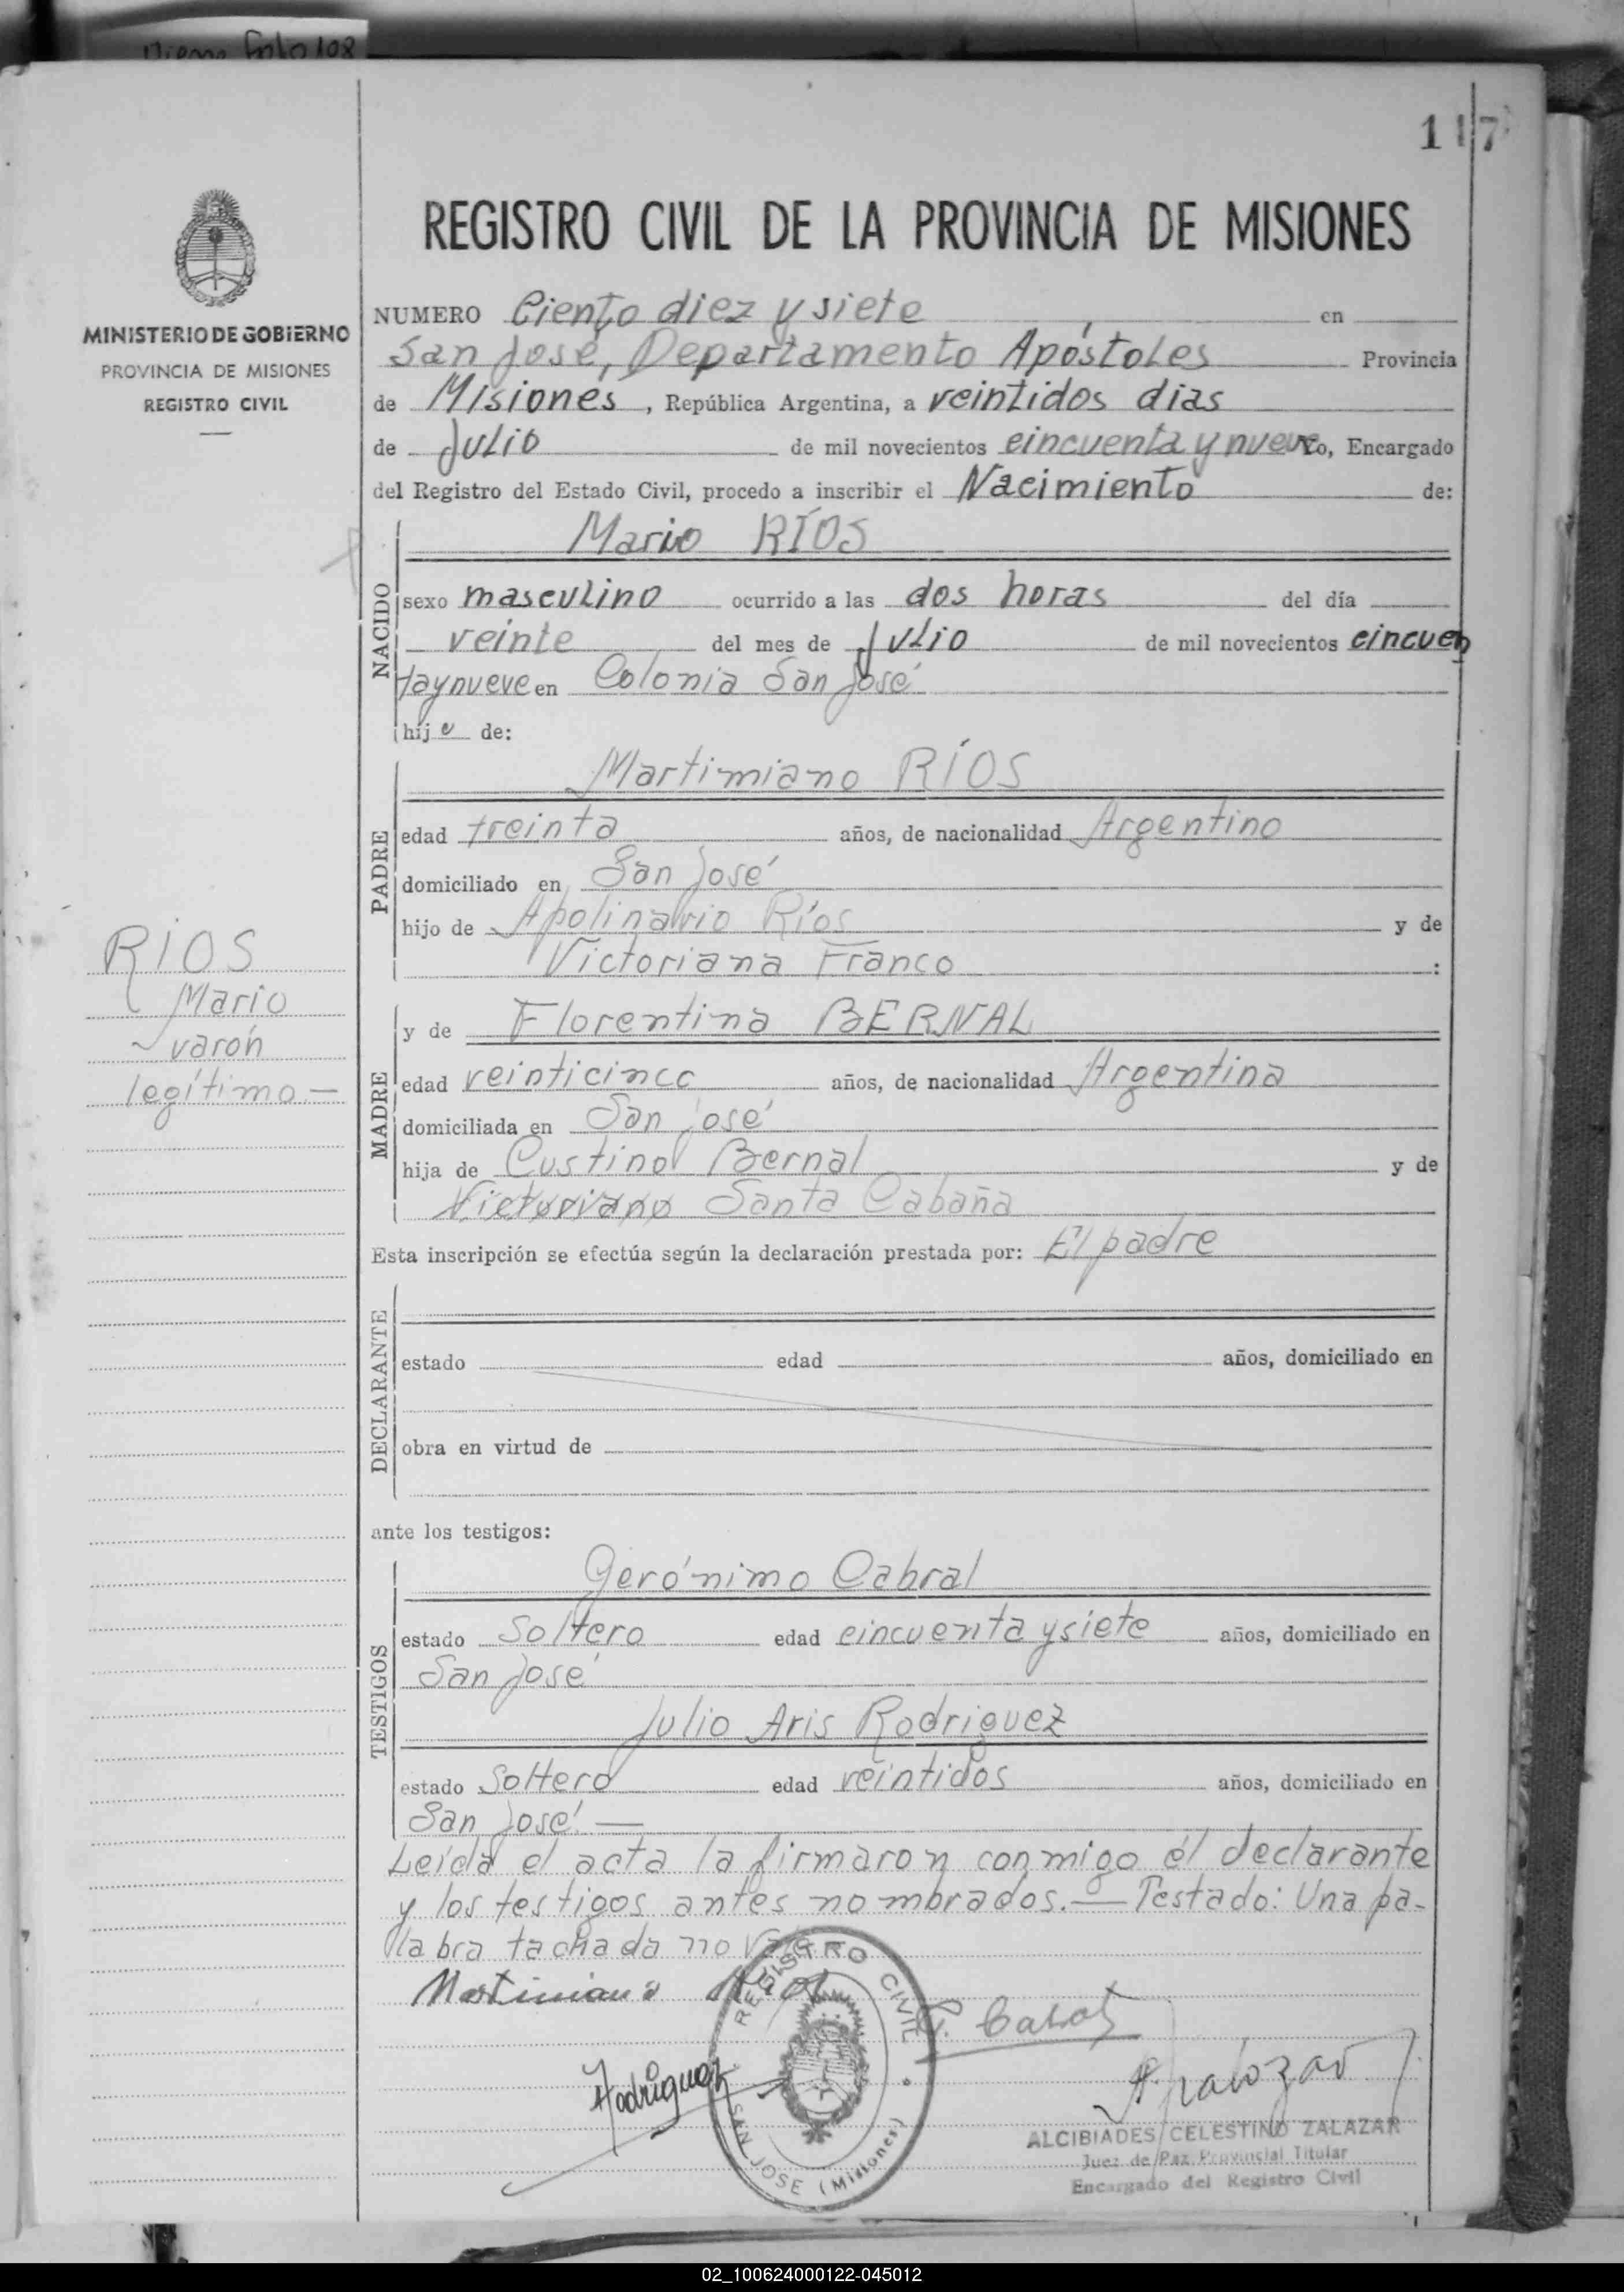 Viene Folio 108
117
REGISTRO CIVIL DE LA PROVINCIA DE MISIONES
MINISTERIO DE GOBIERNO
PROVINCIA DE MISIONES
REGISTRO CIVIL
NUMERO Ciento diez y siete en
San José, Departamento Apóstoles Provincia
de Misiones, República Argentina, a veintidos dias
de Julio de mil novecientos cincuenta y nueve Yo, Encargado
del Registro del Estado Civil, procedo a inscribir el Nacimiento de:
NACIDO
Mario RÍOS
sexo masculino ocurrido a las dos horas del día
veinte del mes de Julio de mil novecientos cincuen
taynueve en Colonia San José
hijo de:
PADRE
Martimiano RÍOS
edad treinta años, de nacionalidad Argentino
domiciliado en San José
hijo de Apolinario Ríos y de
Victoriana Franco :
RIOS
Mario
varón
legítimo.—
MADRE
y de Florentina BERNAL
edad veinticinco años, de nacionalidad Argentina
domiciliada en San José
hija de Custino Bernal y de
Victoriano Santa Cabaña
Esta inscripción se efectúa según la declaración prestada por: El padre
DECLARANTE
estado edad años, domiciliado en
obra en virtud de
ante los testigos:
TESTIGOS
Gerónimo Cabral
estado Soltero edad cincuenta ysiete años, domiciliado en
San José
Julio Aris Rodriguez
estado Soltero edad veintidos años, domiciliado en
San José.—
Leída el acta la firmaron conmigo el declarante
y los testigos antes nombrados.— Testado: Una pa-
labra tachada no vale
Martimiano Rios
G. Cabral
Rodriguez
A. Zalazar
REGISTRO CIVIL
SAN JOSE (Misiones)
ALCIBIADES CELESTINO ZALAZAR
Juez de Paz Provincial Titular
Encargado del Registro Civil
02_100624000122-045012